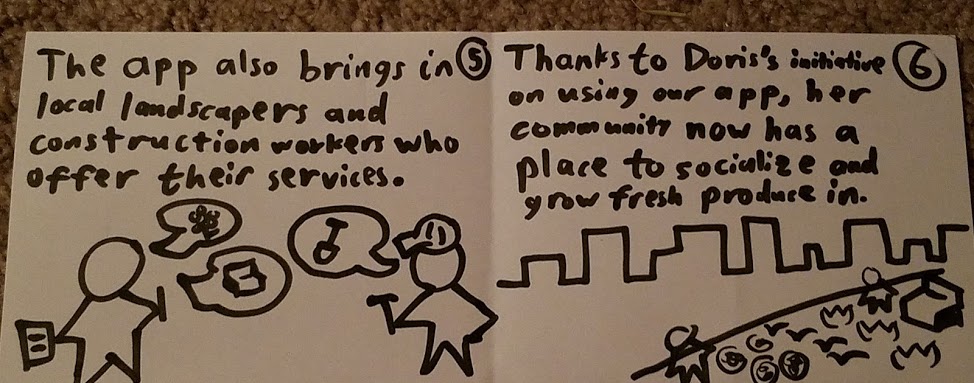 The app also brings in 5
local landscapers and
construction workers who
offer their services.
Thanks to Doris's initiative 6
on using our app, her
community now has a
place to socialize and
grow fresh produce in.